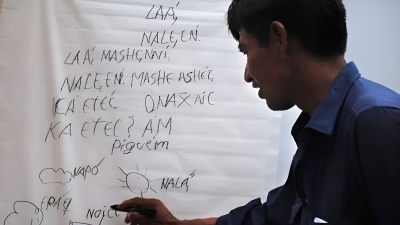 LAÁ,
NALE,EN.
LA,Á, MASHENNI.
NALE,EN. MASHE ASHET,
KA ETEC, ONAXAIC
KA ETEC? AM
Piguem
NAPÓ
NALÁ,